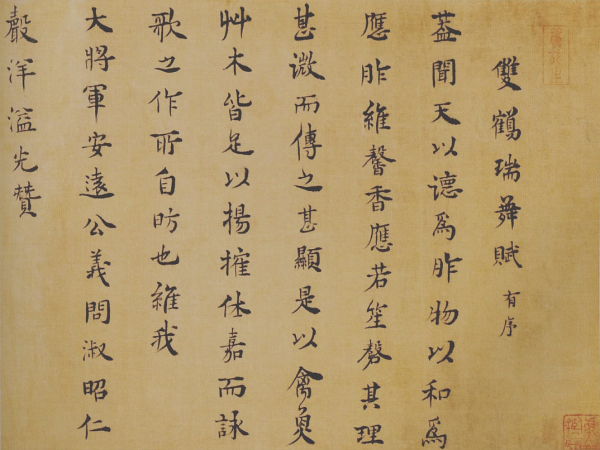 雙鶴瑞舞賦 有序
蓋聞天以德爲胙物以和爲
應胙維馨香應若笙磬其理
甚微而傳之甚顯是以禽魚
艸木皆足以揚搉休嘉而詠
歌之作所自昉也維我
大將軍安遠公義問淑昭仁
聲洋溢光贊